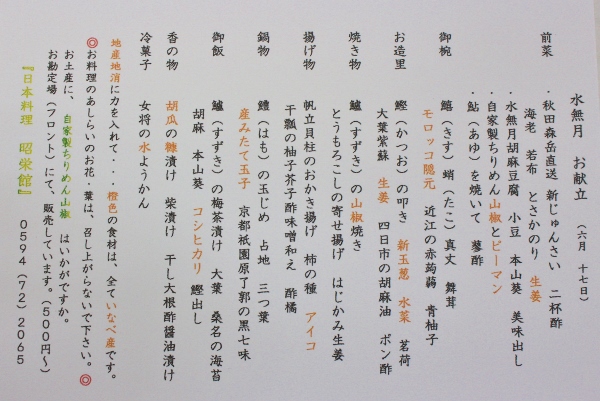 水無月 お献立 (六月 十七日)
前菜 ・秋田森岳直送 新じゅんさい 二杯酢
海老 若布 とさかのり 生姜
・水無月胡麻豆腐 小豆 本山葵 美味出し
・自家製ちりめん山椒とピーマン
・鮎(あゆ)を焼いて 蓼酢
御椀 鱚(きす)蛸(たこ)真丈 舞茸
モロッコ隠元 近江の赤蒟蒻 青柚子
お造里 鰹(かつお)の叩き 新玉葱 水菜 茗荷
大葉紫蘇 生姜 四日市の胡麻油 ポン酢
焼き物 鱸(すずき)の山椒焼き
とうもろこしの寄せ揚げ はじかみ生姜
揚げ物 帆立貝柱のおかき揚げ 柿の種 アイコ
干瓢の柚子芥子酢味噌和え 酢橘
鍋物 鱧(はも)の玉じめ 占地 三つ葉
産みたて玉子 京都祇園原了郭の黒七味
御飯 鱸(すずき)の梅茶漬け 大葉 桑名の海苔
胡麻 本山葵 コシヒカリ 鰹出し
香の物 胡瓜の糠漬け 柴漬け 干し大根酢醤油漬け
冷菓子 女将の水ようかん
地産地消に力を入れて・・・橙色の食材は、全ていなべ産です。
◎お料理のあしらいのお花・葉は、召し上がらないで下さい。◎
お土産に、自家製ちりめん山椒 はいかがですか。
お勘定場(フロント)にて、販売しています。(500円～)
『日本料理 昭栄館』 0594(72)2065